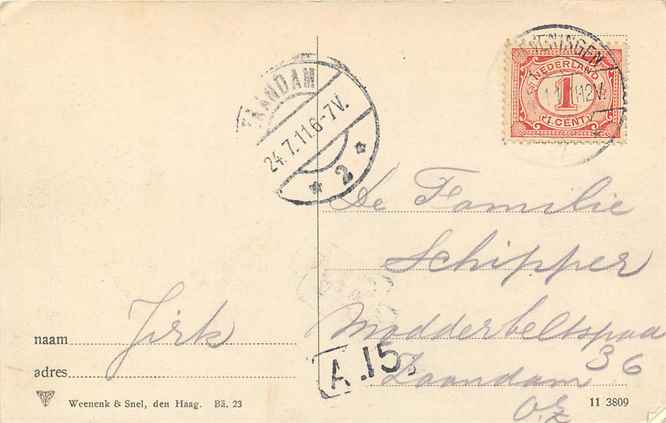 NEDERLAND
1
1 CENT
12V.
ZAANDAM
24.7.11.6-7V.
2
De Familie
Schipper
Modderbeltspad
36
Zaandam
O.Z.
naam Jirk
adres
A.15.
Weenenk & Snel, den Haag. Bā. 23
11 3809